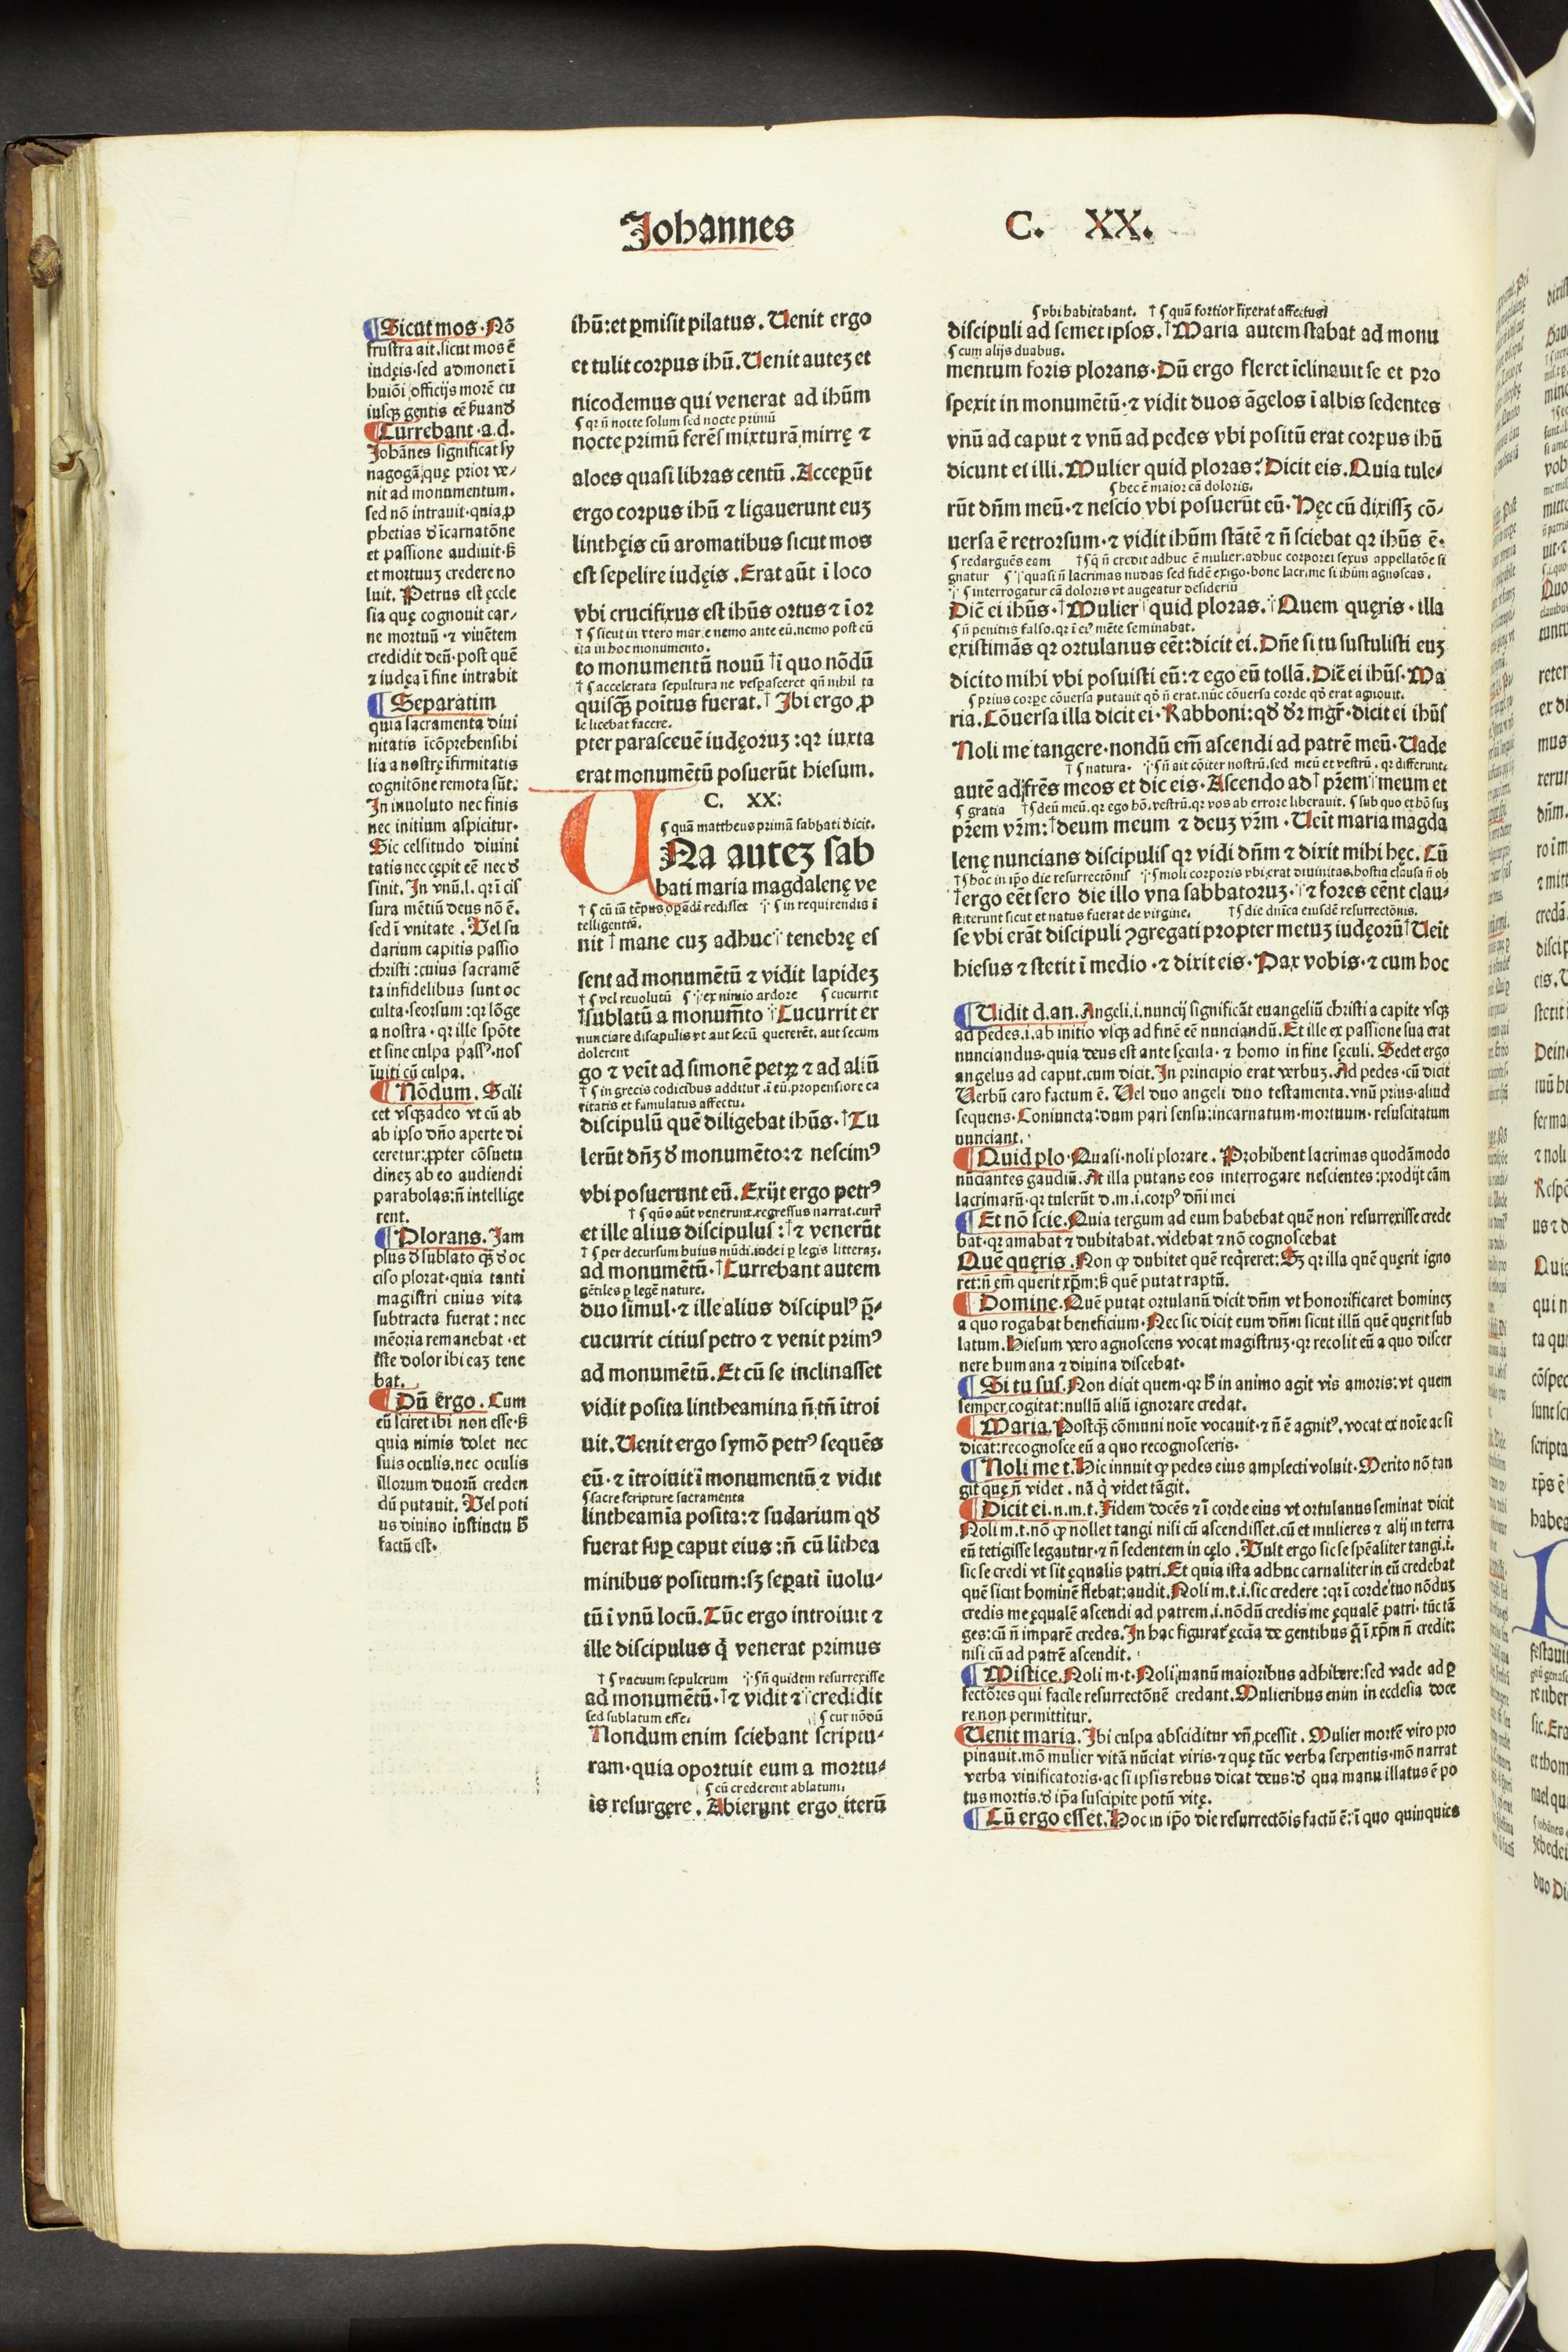 Johannes
C. XX.
¶ Sicut mos. Nō
frustra ait. sicut mos ē
iudęis. sed admonet ī
huiōi officijs morē cu
iusqꝫ gentis eē ẜuandū
¶ Currebant .a.d.
Johānes significat sy
nagogā, quę prior ve⸗
nit ad monumentum.
sed nō intrauit. quia ꝓ
phetias de īcarnatōne
et passione audiuit. sꝫ
et mortuuꝫ credere no
luit. Petrus est eccle
sia quę cognouit car⸗
ne mortuū .⁊ viuētem
credidit deū. post quē
⁊ iudęa ī fine intrabit
¶ Separatim
quia sacramenta diui
nitatis īcōprehensibi
lia a nostrę īfirmitatis
cognitōne remota sūt.
In inuoluto nec finis
nec initium aspicitur.
Sic celsitudo diuini
tatis nec cępit eē nec de
sinit. In vnū.l. qꝛ ī cis
sura mētiū deus nō ē.
sed ī vnitate. Vel su
darium capitis passio
christi : cuius sacramē
ta infidelibus sunt oc
culta. seorsum : qꝛ lōge
a nostra . qꝛ ille spōte
et sine culpa passꝰ. nos
īuiti cū culpa.
¶ Nōdum. Scili
cet vsqꝫ adeo vt cū ab
ab ipso dño aperte di
ceretur: ꝓpter cōsuetu
dineꝫ ab eo audiendi
parabolas: ñ intellige
rent.
¶ Plorans. Jam
plus de sublato qꝫ de oc
ciso plorat. quia tanti
magistri cuius vita
subtracta fuerat : nec
mēoria remanebat . et
iste dolor ibi eaꝫ tene
bat.
¶ Dū ergo. Cum
eū sciret ibi non esse. sꝫ
quia nimis dolet nec
suis oculis. nec oculis
illorum duorū creden
dū putauit. Vel poti
us diuino instinctu hoc
factū est.
ihū: et ꝑmisit pilatus. Uenit ergo
et tulit corpus ihū. Uenit auteꝫ et
nicodemus qui venerat ad ihūm
¶ qꝛ ñ nocte solum sed nocte primū
nocte primū ferēs mixturā mirrę ⁊
aloes quasi libras centū. Acceperūt
ergo corpus ihū ⁊ ligauerunt euꝫ
linthęis cū aromatibus sicut mos
est sepelire iudęis. Erat aūt ī loco
vbi crucifixus est ihūs ortus ⁊ ī or
† ¶ sicut in vtero marię nemo ante eū. nemo post eū
ita in hoc monumento.
to monumentū nouū †ī quo nōdū
† ¶ accelerata sepultura ne vesꝑasceret qñ nihil ta
quisqꝫ poitus fuerat.† Jbi ergo ꝓ
le licebat facere.
pter parasceuē iudęoruꝫ : qꝛ iuxta
erat monumētū posuerūt hiesum.
C. XX:
¶ quā mattheus primā sabbati dicit.
UNa auteꝫ sab
bati maria magdalenę ve
† ¶ cū iā tēpus oꝑādi rediisset ⸫ ¶ in requirendis ī
telligentiā.
nit †mane cuꝫ adhuc⸫ tenebrę es
sent ad monumētū ⁊ vidit lapideꝫ
† ¶ vel reuolutū ¶ ⸫ ex nimio ardore ¶ cucurrit
†sublatū a monumēto ⸫Cucurrit er
nunciare discipulis vt aut secū quererēt. aut secum
dolerent
go ⁊ veīt ad simonē petrꝫ ⁊ ad aliū
† ¶ in grecis codicibus additur .i eū. propensiore ca
ritatis et famulatus affectu.
discipulū quē diligebat ihūs. †Tu
lerūt dñꝫ de monumēto: ⁊ nescimꝰ
vbi posuerunt eū. Exijt ergo petrꝰ
† ¶ qūo aūt venerunt. regressus narrat. currē
et ille alius discipulus : †⁊ venerūt
† ¶ per decursum huius mūdi. iudei ꝑ legis litteraꝫ.
ad monumētū. †Currebant autem
gētiles ꝑ legē nature.
duo simul. ⁊ ille alius discipulꝰ p̄⸗
cucurrit citius petro ⁊ venit primꝰ
ad monumētū. Et cū se inclinasset
vidit posita lintheamina ñ. tñ ītroi
uit. Uenit ergo symō petrꝰ sequēs
eū. ⁊ ītroiuit ī monumentū ⁊ vidit
¶ sacre scripture sacramenta
lintheamia posita: ⁊ sudarium qd
fuerat suꝑ caput eius : ñ cū lithea
minibus positum: sꝫ seꝑatī īuolu⸗
tū ī vnū locū. Tūc ergo introiuit ⁊
ille discipulus q̇ venerat primus
† ¶ vacuum sepulcrum ⸫ ¶ñ quidem resurrexisse
ad monumētū. †⁊ vidit ⁊ ⸫credidit
sed sublatum esse. ¶ cur nōdū
Nondum enim sciebant scriptu⸗
ram. quia oportuit eum a mortu⸗
¶ cū crederent ablatum.
is resurgere. Abierunt ergo iterū
¶ vbi habitabant. † ¶ quā fortior fixerat affectus
discipuli ad semetipsos. †Maria autem stabat ad monu
¶ cum alijs duabus.
mentum foris plorans. Dū ergo fleret īclinauit se et pro
spexit in monumētū. ⁊ vidit duos āgelos ī albis sedentes
vnū ad caput ⁊ vnū ad pedes vbi positū erat corpus ihū
dicunt ei illi. Mulier quid ploras? Dicit eis. Quia tule⸗
¶ hec ē maior cā doloris.
rūt dñm meū. ⁊ nescio vbi posuerūt eū. Hęc cū dixissꝫ cō⸗
uersa ē retrorsum. ⁊ vidit ihūm stātē ⁊ ñ sciebat qꝛ ihūs ē.
¶ redarguēs eam † ¶ q̇ ñ credit adhuc ē mulier. adhuc corporei sexus appellatōe si
gnatur ¶ ⸫ quasi ñ lacrimas nudas sed fidē exigo. bone lacrime si ihūm agnoscas.
⸫ ¶ interrogatur cā doloris vt augeatur desideriū
Dicē ei ihūs. †Mulier quid ploras. ⸫Quem quęris . illa
¶ ñ penitus falso. qꝛ ī eiꝰ mēte seminabat.
existimās qꝛ ortulanus eēt: dicit ei. Dñe si tu sustulisti euꝫ
dicito mihi vbi posuisti eū: ⁊ ego eū tollā. Dicē ei ihūs. Ma
¶ prius corpe cōuersa putauit qd̄ ñ erat. nūc cōuersa corde qd̄ erat agnouit.
ria. Cōuersa illa dicit ei. Rabboni: qd dꝛ mgr̄. dicit ei ihūs
Noli me tangere. nondū em̄ ascendi ad patrē meū. Uade
† ¶ natura. ⸫ ¶ ñ ait cōiter nostrū. sed meū et vestrū. qꝛ differunt.
autē ad frēs meos et dic eis. Ascendo ad† pr̄em⸫ meum et
¶ gratia † ¶ deū meū. qꝛ ego hō. vestrū. qꝛ vos ab errore liberauit. ¶ sub quo et hō suꝫ
pr̄em vr̄m: †deum meum ⁊ deuꝫ vr̄m . Ueīt maria magda
lenę nuncians discipulis qꝛ vidi dñm ⁊ dixit mihi hęc. Cū
† ¶ hoc in ipō die resurrectōnis ⸫ ¶ moli corporis vbi erat diuinitas. hostia clausa ñ ob
†ergo eēt sero die illo vna sabbatoruꝫ. ⸫⁊ fores eēnt clau⸗
stiterunt sicut et natus fuerat de virgine. † ¶ die dnīca eiusdē resurrectōnis.
se vbi erāt discipuli ꝯgregati propter metuꝫ iudęorū †Ueīt
hiesus ⁊ stetit ī medio . ⁊ dixit eis. Pax vobis. ⁊ cum hoc
¶ Uidit d.an. Angeli.i. nuncij significāt euangeliū christi a capite vsqꝫ
ad pedes.i. ab initio vsqꝫ ad finē eē nunciandū. Et ille ex passione sua erat
nunciandus. quia deus est ante sęcula. ⁊ homo in fine sęculi. Sedet ergo
angelus ad caput. cum dicit. In principio erat verbuꝫ. Ad pedes. cū dicit
Verbū caro factum ē. Vel duo angeli duo testamenta. vnū prius. aliud
sequens. Coniuncta: dum pari sensu: incarnatum. mortuum. resuscitatum
nunciant.
¶ Quid plo. Quasi. noli plorare. Prohibent lacrimas quodāmodo
nūciantes gaudiū. At illa putans eos interrogare nescientes: prodijt cām
lacrimarū. qꝛ tulerūt d.m.i. corpꝰ dñi mei
¶ Et nō scie. Quia tergum ad eum habebat quē non resurrexisse crede
bat. qꝛ amabat ⁊ dubitabat. videbat ⁊ nō cognoscebat
Quē quęris. Non ꝙ dubitet quē req̇reret: Sꝫ qꝛ illa quē quęrit igno
ret: ñ em̄ querit xp̄m: sꝫ quē putat raptū.
¶ Domine. Quē putat ortulanū dicit dñm vt honorificaret homineꝫ
a quo rogabat beneficium. Nec sic dicit eum dñm sicut illū quē quęrit sub
latum. Hiesum vero agnoscens vocat magistruꝫ. qꝛ recolit eū a quo discer
nere humana ⁊ diuina discebat.
¶ Si tu sus. Non dicit quem. qꝛ hoc in animo agit vis amoris: vt quem
semper cogitat: nullū aliū ignorare credat.
¶ Maria. Postqꝫ cōmuni noīe vocauit. ⁊ ñ ē agnitꝰ. vocat ex noīe ac si
dicat: recognosce eū a quo recognosceris.
¶ Noli me t. Hic innuit ꝙ pedes eius amplecti voluit. Merito nō tan
git quę ñ videt . nā q̇ videt tāgit.
¶ Dicit ei. n.m.t. Fidem docēs ⁊ ī corde eius vt ortulanus seminat dicit
Noli m.t. nō ꝙ nollet tangi nisi cū ascendisset. cū et mulieres ⁊ alij in terra
eū tetigisse legautur. ⁊ ñ sedentem in cęlo. Vult ergo sic se spēaliter tangi.i.
sic se credi vt sit ęqualis patri. Et quia ista adhuc carnaliter in eū credebat
quē sicut hominē flebat: audit. Noli m.t.i. sic credere : qꝛ ī corde tuo nōduꝫ
credis me ęqualē ascendi ad patrem.i. nōdū credis me ęqualē patri. tūc tā
ges: cū ñ imparē credes. In hac figuratꝰ ęccīa de gentibus q̄ ī xp̄m ñ credit:
nisi cū ad patrē ascendit.
¶ Mistice. Noli m.t. Noli manū maioribus adhibere: sed vade ad ꝑ
fectōres qui facile resurrectōnē credant. Mulieribus enim in ecclesia doce
re non permittitur.
Uenit maria. Jbi culpa absciditur vñ ꝓcessit. Mulier mortē viro pro
pinauit. mō mulier vitā nūciat viris. ⁊ quę tūc verba serpentis. mō narrat
verba viuificatoris. ac si ipsis rebus dicat deus: de qua manu illatus ē po
tus mortis. de ipā suscipite potū vitę.
¶ Cū ergo esset. Hoc in ipō die resurrectōis factū ē: ī quo quinquies